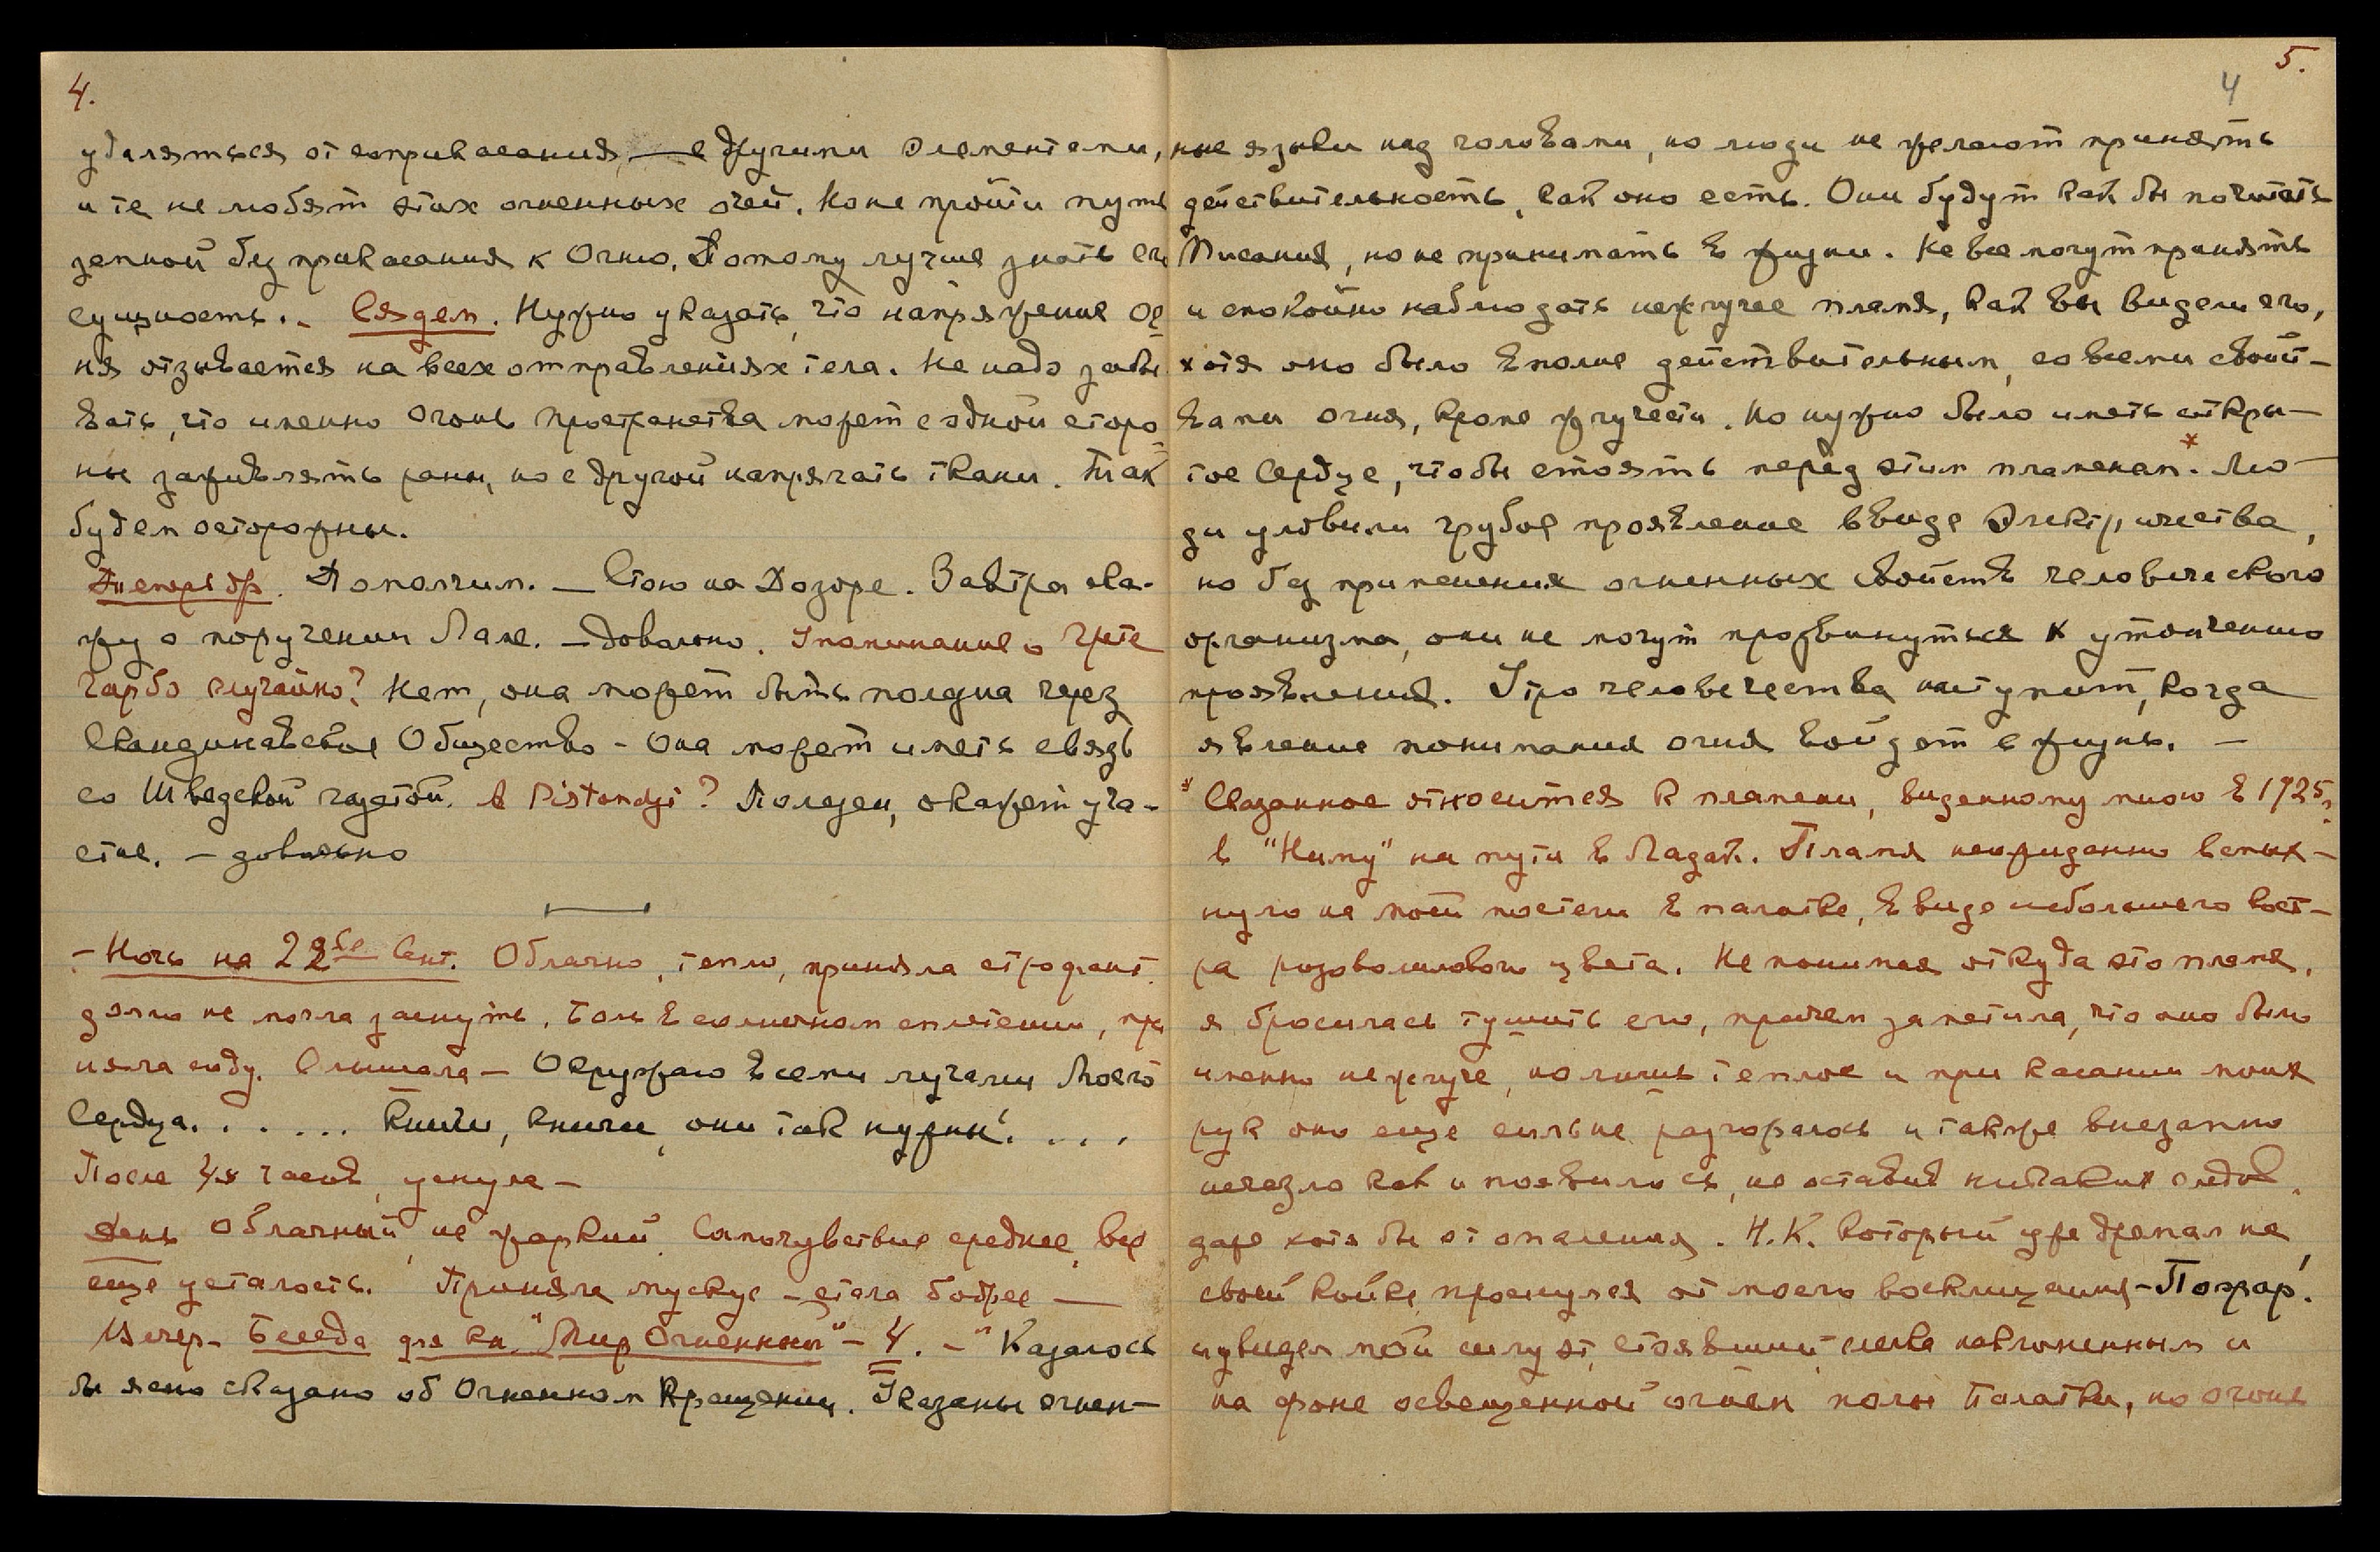 4.
удаляться от соприкасания, — с другими элементами,
и те не любят этих огненных очей. Но не пройти путь
земной без прикасания к Огню. Потому лучше знать его
сущность. – Сядем. Нужно указать, что напряжение Ог
ня отзывается на всех отправлениях тела. Не надо забы
вать, что именно Огонь пространства может с одной сторо
ны заживлять раны, но с другой напрягать ткани. Так
будем осторожны.
Помолчим. — Стою на Дозоре. Завтра ска-
жу о поручении Лане. – Довольно. Упоминание о Грете
Гарбо случайно? Нет, она может быть полезна через
Скандинавское Общество – Она может иметь связь
со Шведской газетой. А Pistondji? Полезен, окажет уча-
стие. – довольно
– Ночь на 22ое Сент. Облачно, тепло, приняла строфант.
долго не могла заснуть. Боль в солнечном сплетении, при
няла соду. Слышала – Окружаю всеми лучами Моего
Сердца. . . . . . Книги, книги, они так нужны! . . .
После 4х часов уснула –
День облачный, не жаркий. Самочувствие среднее, все
еще усталость. Приняла мускус – стала бодрее —
Вечер – Беседа для кн. "Мир Огненный" – 4. – "Казалось
бы ясно сказано об Огненном Крещении. Указаны огнен-
5.
4
ные языки над головами, но люди не желают принять
действительность, как она есть. Они будут как бы почитать
Писания, но не принимать в жизни. Не все могут принять
и спокойно наблюдать нежгучее пламя, как вы видели его,
хотя оно было вполне действительным, со всеми свойст-
вами огня, кроме жгучести. Но нужно было иметь откры-
тое Сердце, чтобы стоять перед этим пламенем*. Лю-
ди уловили грубое проявление в виде Электричества,
но без применения огненных свойств человеческого
организма, они не могут продвинуться к утончению
проявления. Утро человечества наступит, когда
явление понимания огня войдет в жизнь. –
* Сказанное относится к пламени, виденному мною в 1925 г.
в "Ниму" на пути в Ладак. Пламя неожиданно вспых-
нуло на моей постели в палатке, в виде небольшого кост-
ра розоволилового цвета. Не понимая откуда это пламя,
я бросилась тушить его, причем заметила, что оно было
именно нежгуче, но лишь теплое и при касании моих
рук оно еще сильнее разгоралось и также внезапно
исчезло как и появилось, не оставив никаких следов,
даже хотя бы от опаления. Н.К. который уже дремал на
своей койке, проснулся от моего восклицания – Пожар!
и увидел мой силуэт, стоявший слегка наклоненным и
на фоне освещенной огнем полы палатки, но огонь